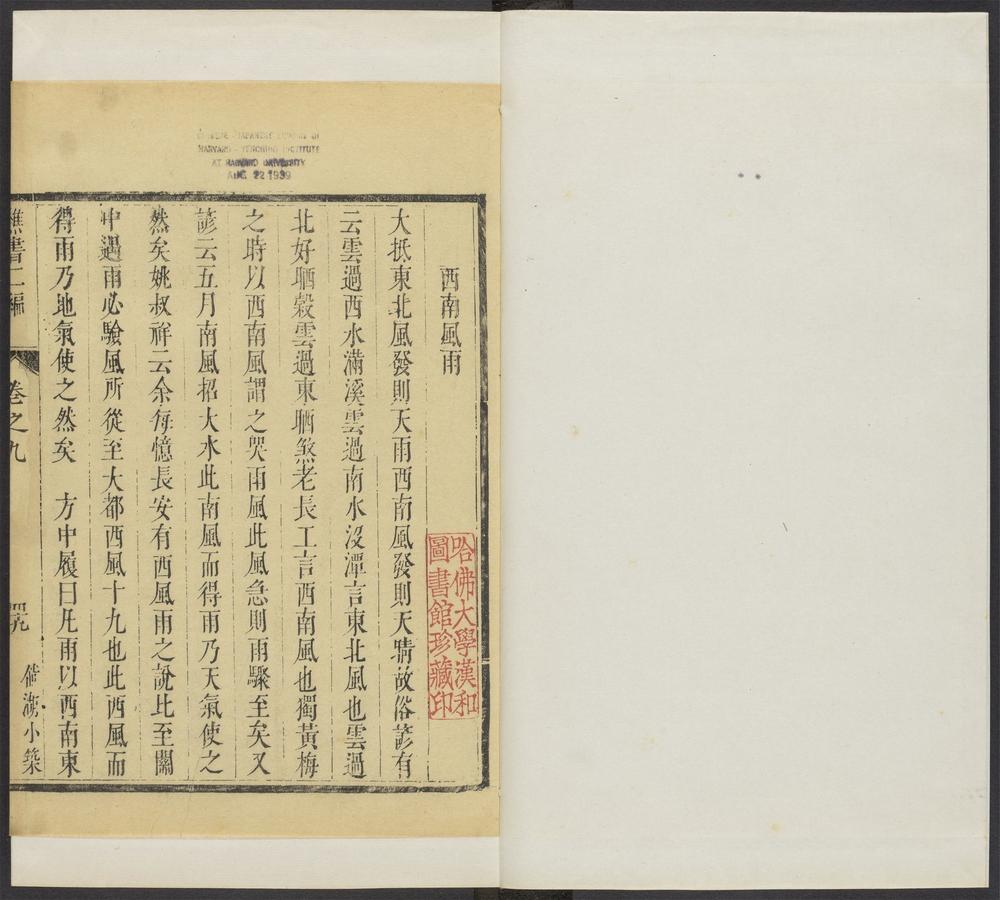 CHINESE-JAPANESE LIBRARY OF
HARVARD-YENCHING INSTITUTE
AT HARVARD UNIVERSITY
AUG 22 1939
西南風雨
大抵東北風發則天雨西南風發則天晴故俗諺有
云雲過西水滿溪雲過南水沒潭言東北風也雲過
北好晒穀雲過東晒煞老長工言西南風也獨黃梅
之時以西南風謂之哭雨風此風急則雨驟至矣又
諺云五月南風招大水此南風而得雨乃天氣使之
然矣姚叔祥云余每憶長安有西風雨之說比至關
中遇雨必驗風所從至大都西風十九也此西風而
得雨乃地氣使之然矣　方中履曰凡雨以西南東
樵書二編
卷之九
倘湖小築
哈佛大學漢和
圖書館珍藏印